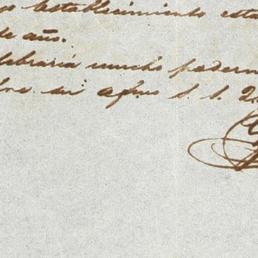 establecimiento esta
de año.
lebraria mucho poderm
su afmo S. S. 2